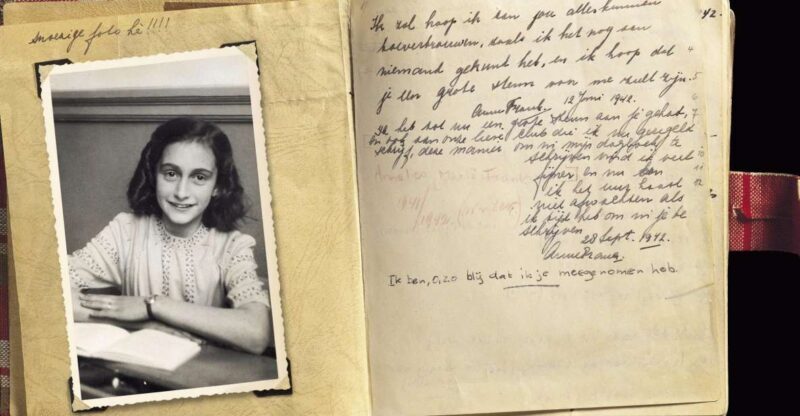 Snoezige foto hè!!!!
42.
Ik zal hoop ik aan jou alles kunnen
toevertrouwen, zoals ik het nog aan
niemand gekund heb, en ik hoop dat
je een grote steun van me zult zijn.
Anne Frank. 12 Juni 1942.
Ik heb tot nu een grote steun aan je gehad,
en ook aan onze lieve club die ik nu geregeld
schrijf, deze manier om in mijn dagboek te
schrijven vind ik veel
fijner en nu kan
ik het uur haast
niet afwachten als
ik tijd heb om in je te
schrijven.
28 Sept. 1942.
Anne Frank.
Ik ben, o, zo blij dat ik je meegenomen heb.